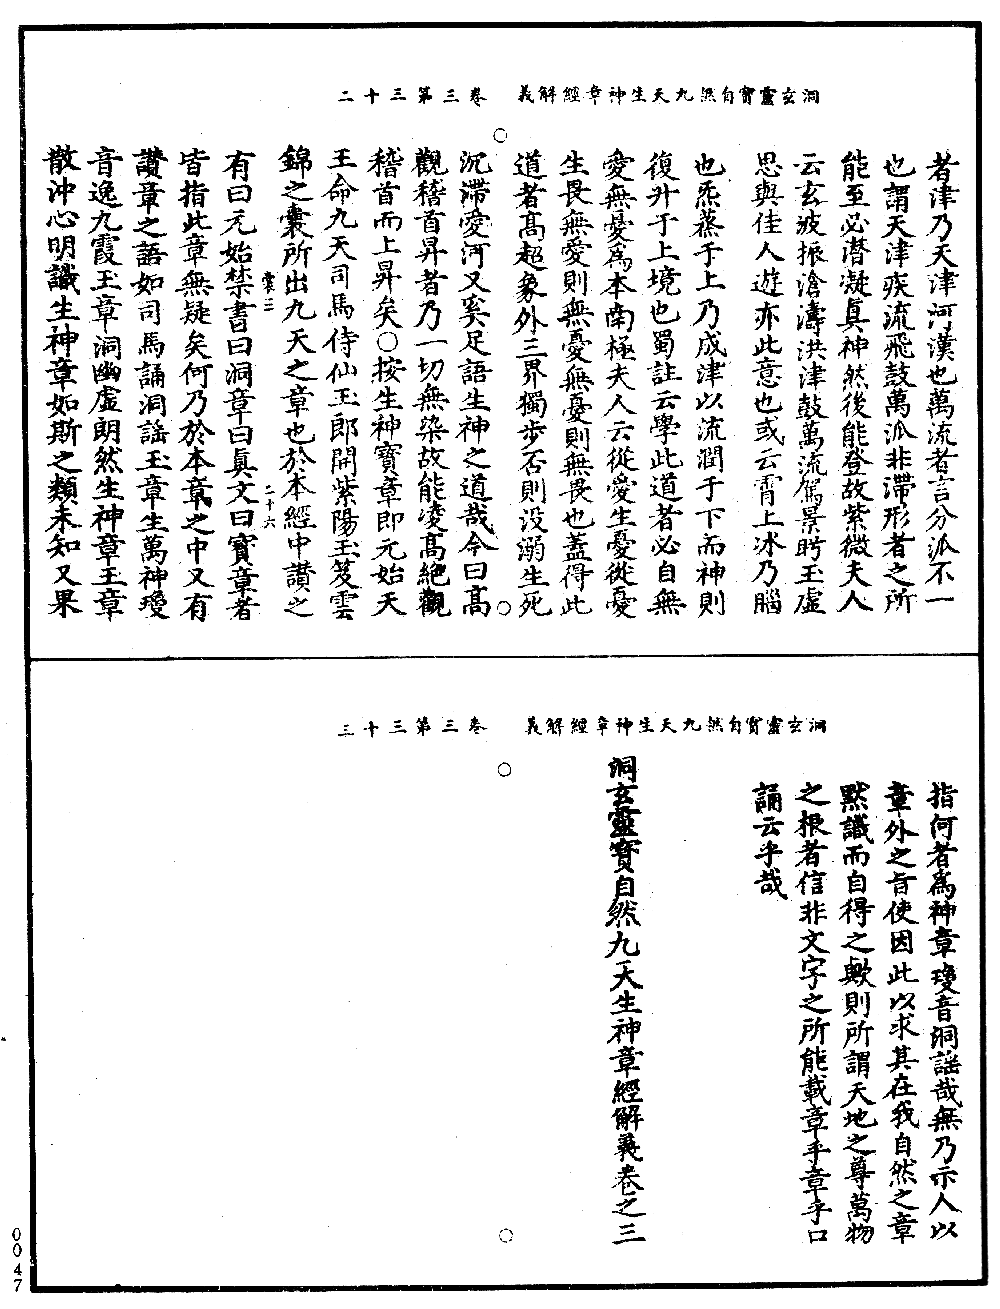 洞玄靈寶自然九天生神章經解義　卷三第三十二
者津乃天津河漢也萬流者言分派不一
也謂天津疾流飛鼓萬派非滯形者之所
能至必潛凝真神然後能登故紫微夫人
云玄波振滄濤洪津鼓萬流駕景眄玉虛
思與佳人遊亦此意也或云霄上冰乃腦
也炁蒸于上乃成津以流潤于下而神則
復升于上境也蜀註云學此道者必自無
愛無憂為本南極夫人云從愛生憂從憂
生畏無愛則無憂無憂則無畏也蓋得此
道者高超象外三界獨步否則没溺生死
沉滯愛河又奚足語生神之道哉今曰高
觀稽首昇者乃一切無染故能凌高絶觀
稽首而上昇矣○按生神寶章即元始天
王命九天司馬侍仙玉郎開紫陽玉笈雲
錦之囊所出九天之章也於本經中讚之
棠三　二十六
有曰元始禁書曰洞章曰真文曰寶章者
皆指此章無疑矣何乃於本章之中又有
讚章之語如司馬誦洞謡玉章生萬神瓊
音逸九霞玉章洞幽虛朗然生神章玉章
散沖心明識生神章如斯之類未知又果
洞玄靈寶自然九天生神章經解義　卷三第三十三
指何者為神章瓊音洞謡哉無乃示人以
章外之旨使因此以求其在我自然之章
默識而自得之歟則所謂天地之尊萬物
之根者信非文字之所能載章乎章乎口
誦云乎哉
洞玄靈寶自然九天生神章經解義卷之三
0047